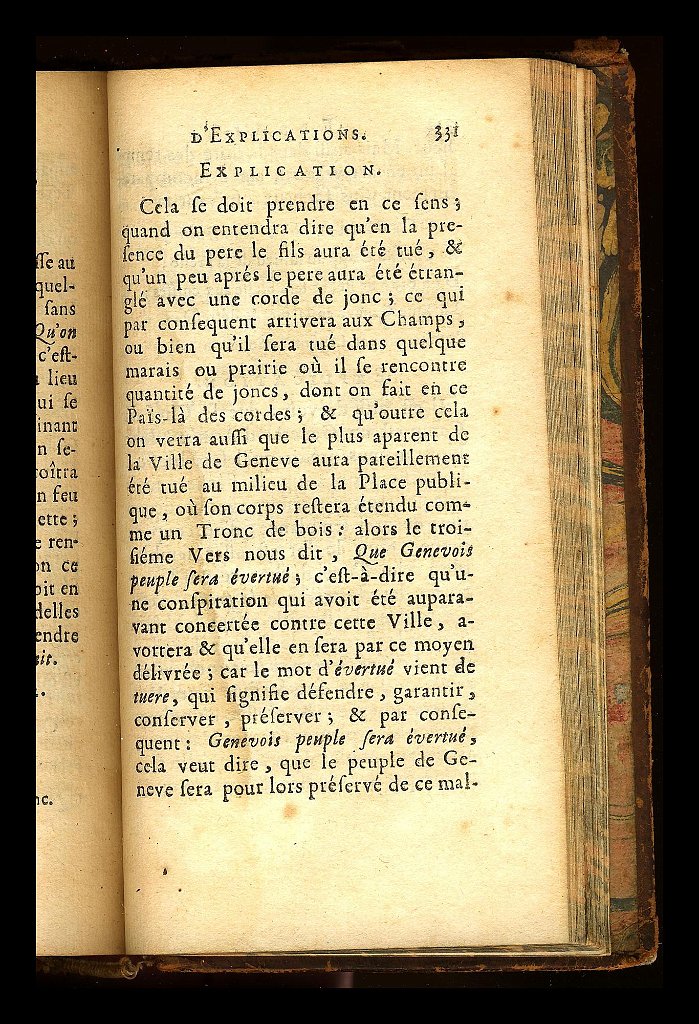 ſſe au
quel-
ſans
Qu'on
c'eſt-
lieu
ui ſe
inant
n ſe-
oîtra
n feu
ette ;
e ren-
on ce
oit en
delles
endre
it.
nc.
D'EXPLICATIONS. 331
EXPLICATION.
Cela ſe doit prendre en ce ſens ;
quand on entendra dire qu'en la pre-
ſence du pere le fils aura été tué, &
qu'un peu aprés le pere aura été étran-
glé avec une corde de jonc ; ce qui
par conſequent arrivera aux Champs,
ou bien qu'il ſera tué dans quelque
marais ou prairie où il ſe rencontre
quantité de joncs, dont on fait en ce
Païs-là des cordes ; & qu'outre cela
on verra auſſi que le plus aparent de
la Ville de Geneve aura pareillement
été tué au milieu de la Place publi-
que, où ſon corps reſtera étendu com-
me un Tronc de bois : alors le troi-
ſiéme Vers nous dit, Que Genevois
peuple ſera évertué ; c'eſt-à-dire qu'u-
ne conſpiration qui avoit été aupara-
vant concertée contre cette Ville, a-
vortera & qu'elle en ſera par ce moyen
délivrée ; car le mot d'évertué vient de
tuere, qui ſignifie défendre, garantir,
conſerver, préſerver ; & par conſe-
quent : Genevois peuple ſera évertué,
cela veut dire, que le peuple de Ge-
neve ſera pour lors préſervé de ce mal-